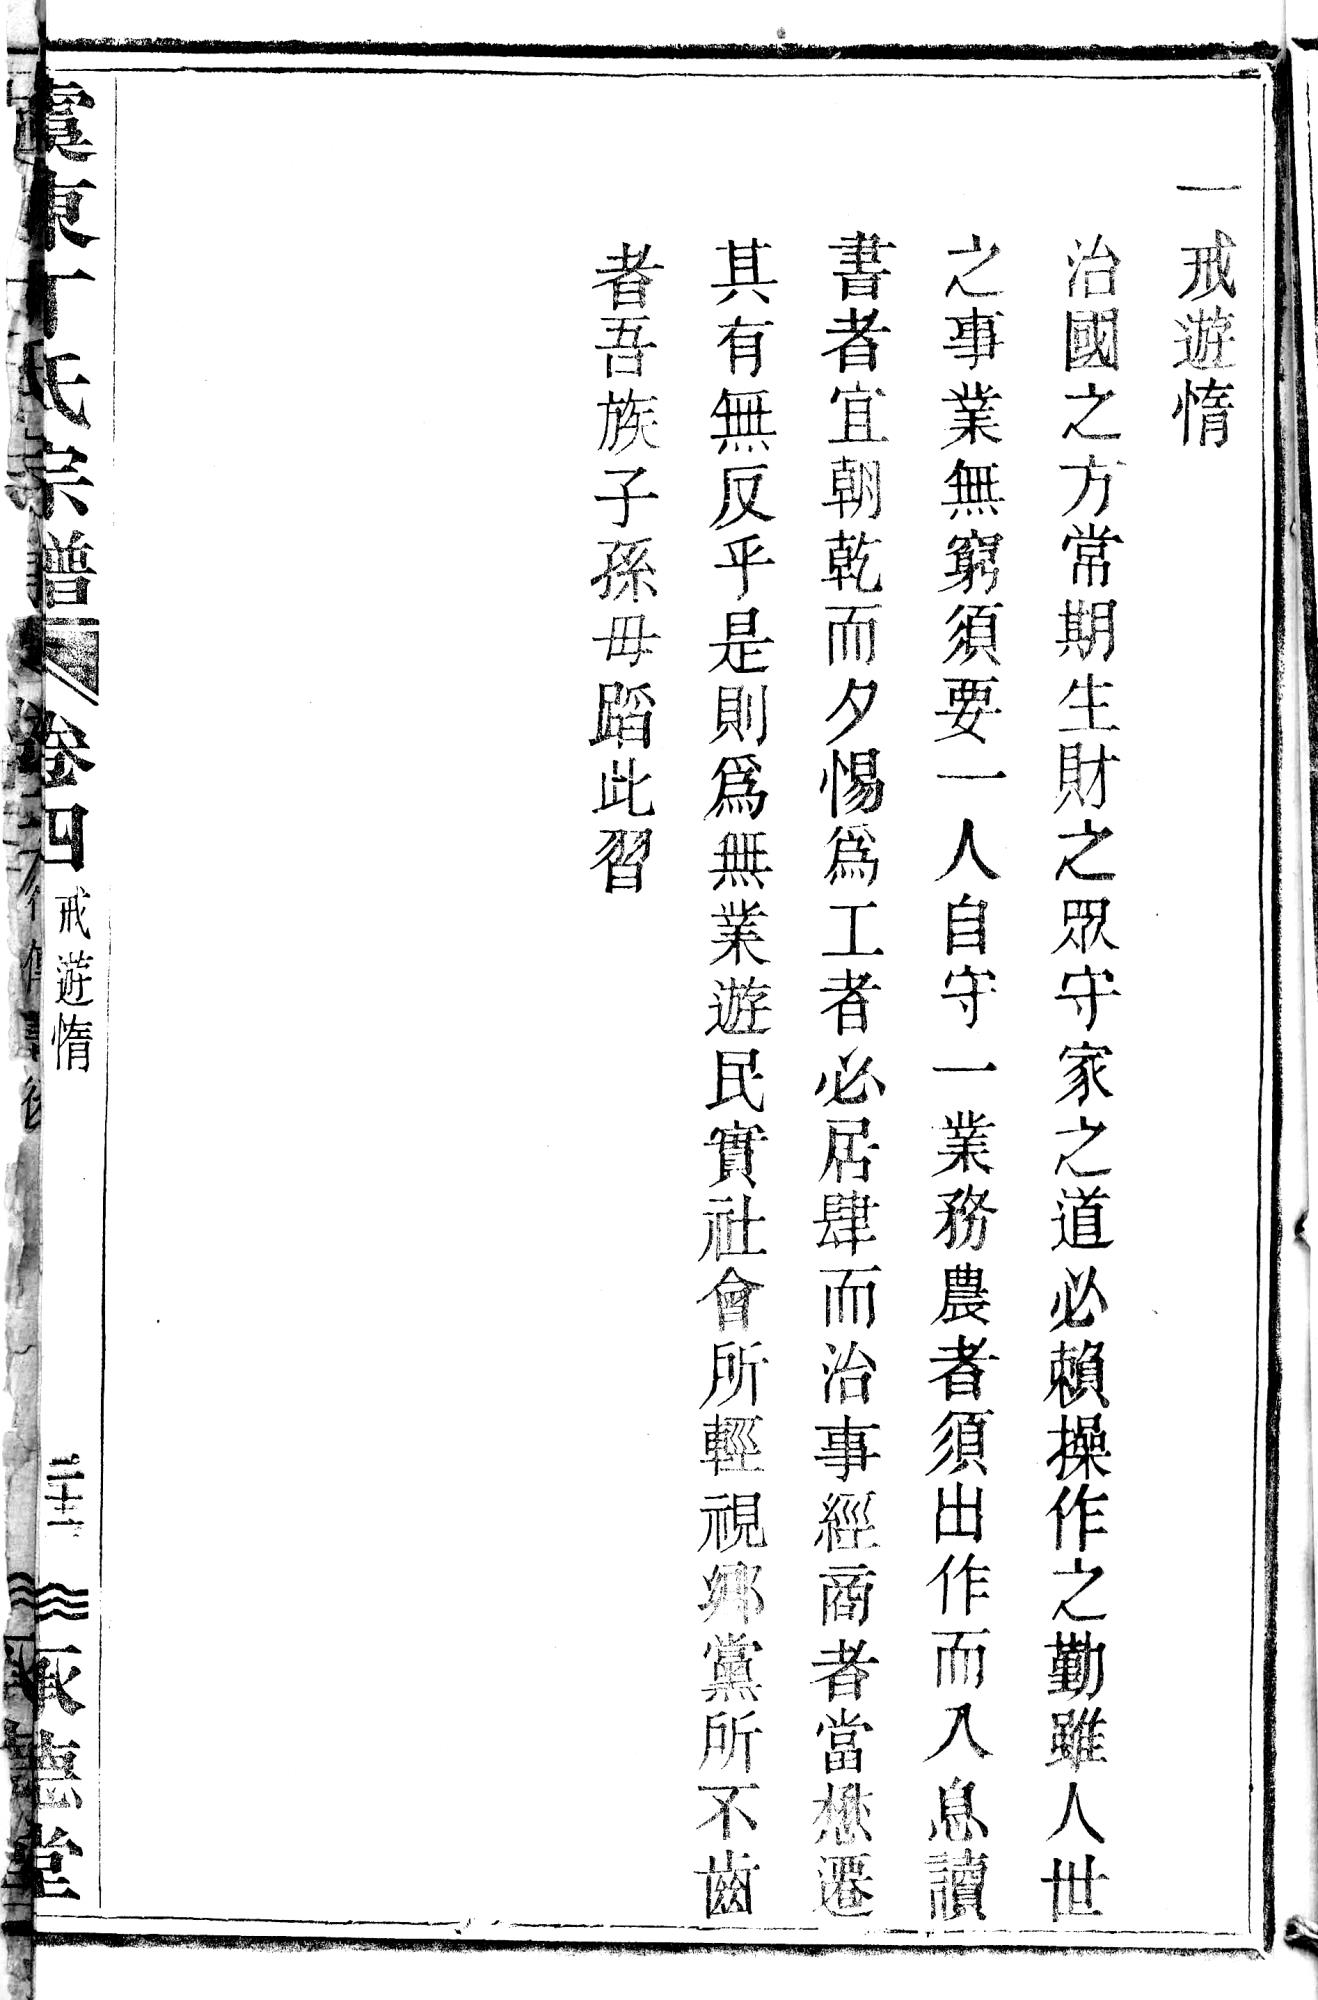 一戒遊惰
治國之方常期生財之眾守家之道必賴操作之勤雖人世
之事業無窮須要一人自守一業務農者須出作而入息讀
書者宜朝乾而夕惕爲工者必居肆而治事經商者當懋遷
其有無反乎是則爲無業遊民實社會所輕視鄉黨所不齒
者吾族子孫毋蹈此習
虞東丁氏宗譜
卷四
戒遊惰
承德堂